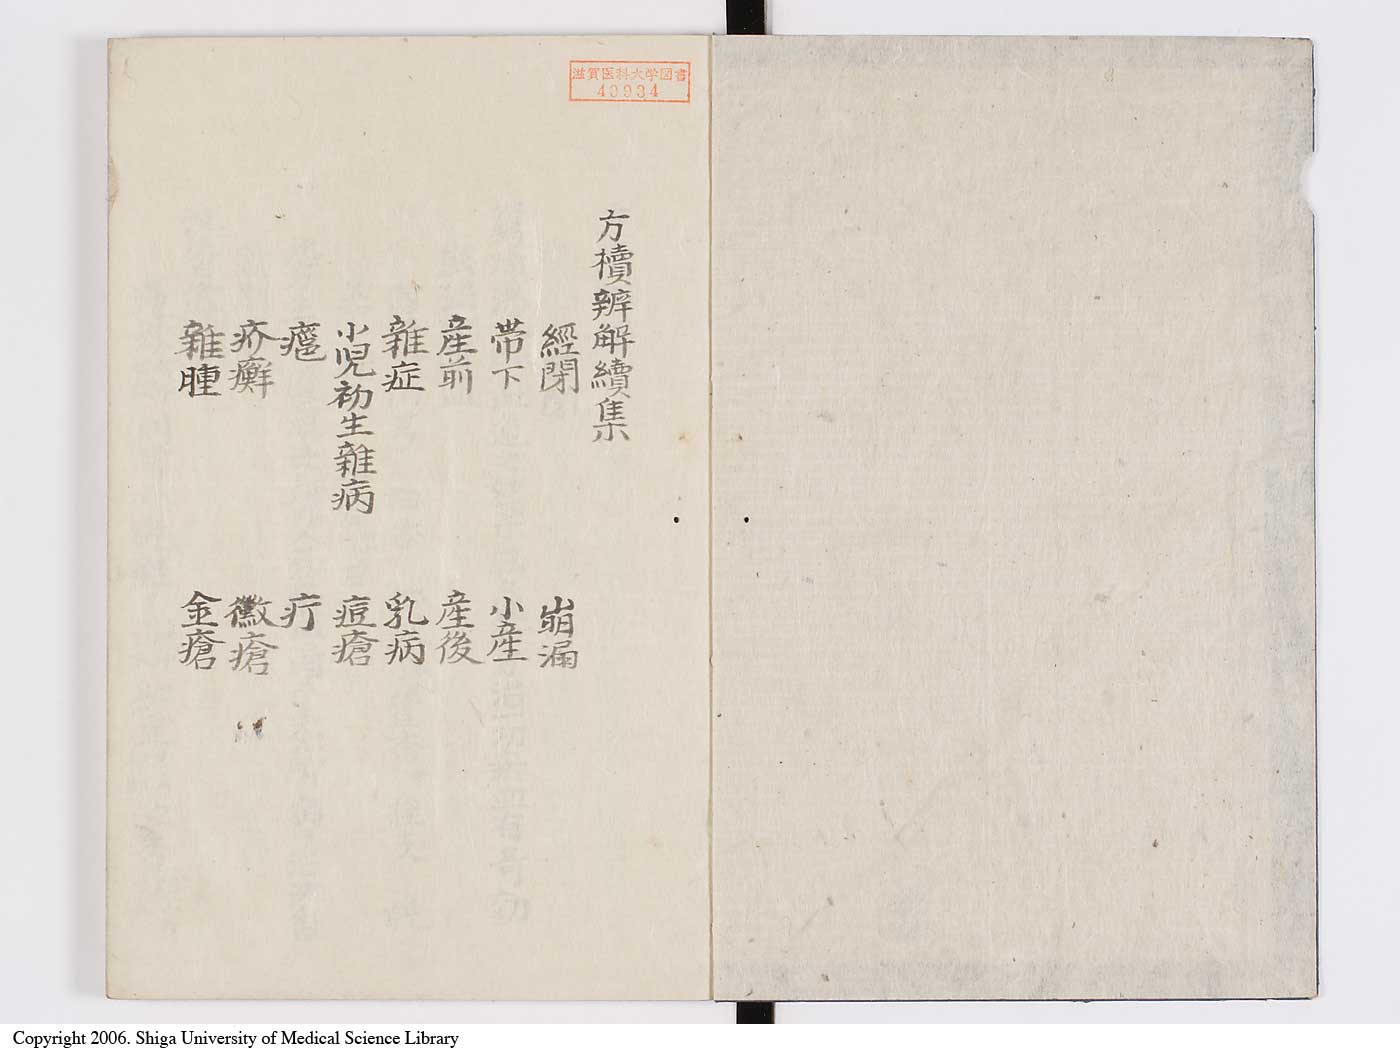 滋賀医科大学図書
40934
方櫝辨解續集
經閉 崩漏
帯下 小産
産前 産後
雜症 乳病
小児初生雜病 痘瘡
疔
疥癬 黴瘡
雜腫 金瘡
Copyright 2006. Shiga University of Medical Science Library